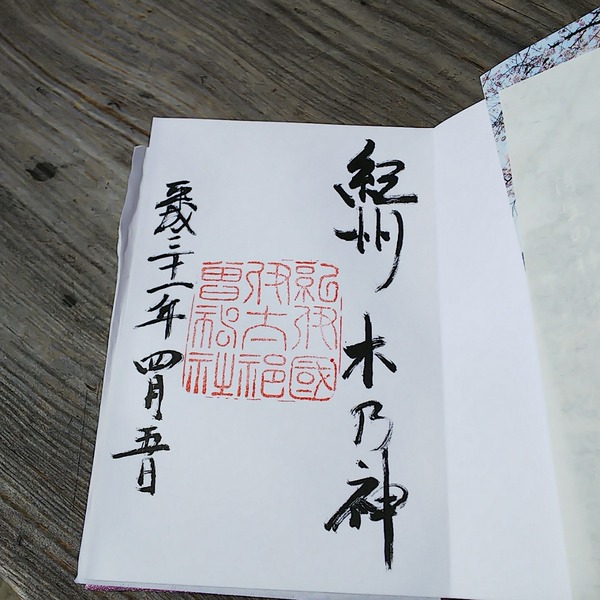 紀州 木乃神
紀伊國
伊太祁
曽神社
平成三十一年 四月五日